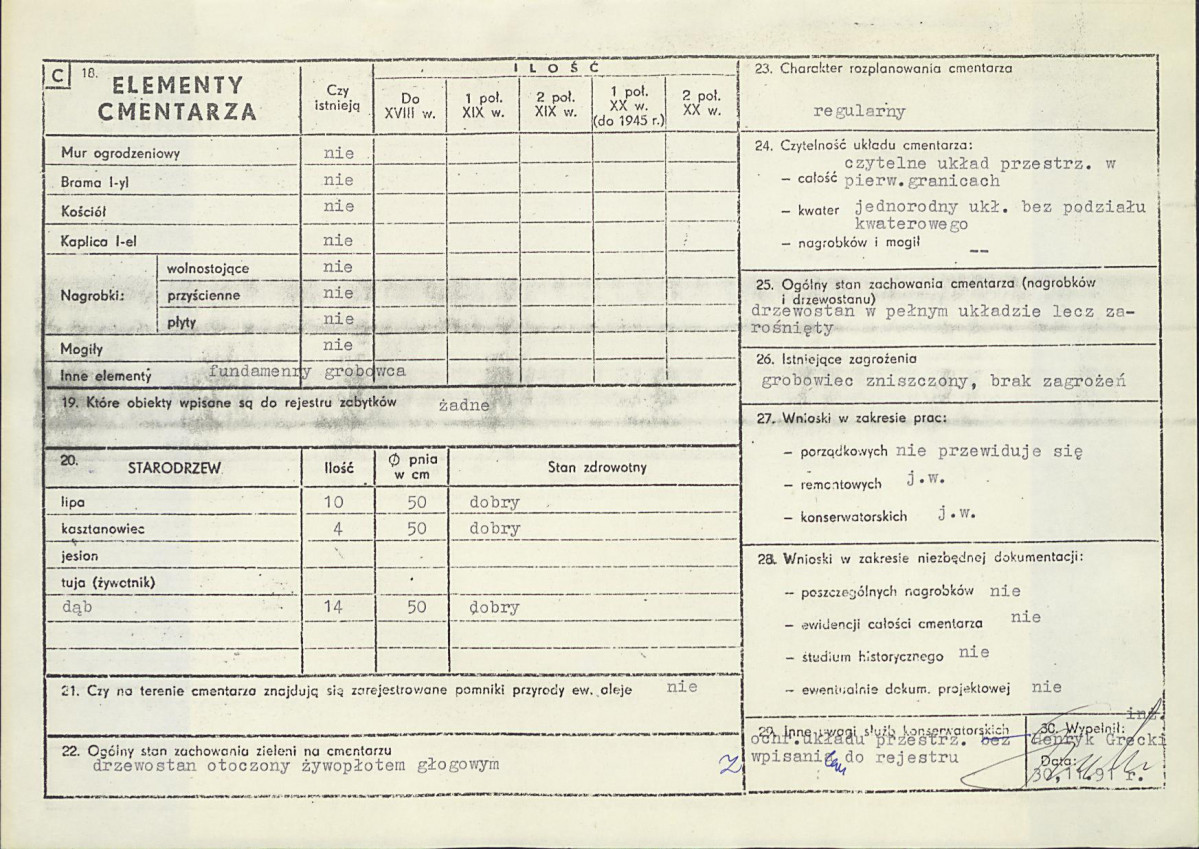 C 18. ELEMENTY CMENTARZA
Czy istnieją
I L O Ś Ć
Do XVIII w.
1 poł. XIX w.
2 poł. XIX w.
1 poł. XX w. (do 1945 r.)
2 poł. XX w.
Mur ogrodzeniowy nie
Brama I-yl nie
Kościół nie
Kaplica I-el nie
Nagrobki:
wolnostojące nie
przyścienne nie
płyty nie
Mogiły nie
Inne elementy fundamenry grobowca
19. Które obiekty wpisane są do rejestru zabytków żadne
20. STARODRZEW Ilość Ø pnia w cm Stan zdrowotny
lipa 10 50 dobry
kasztanowiec 4 50 dobry
jesion
tuja (żywotnik)
dąb 14 50 dobry
21. Czy na terenie cmentarza znajdują się zarejestrowane pomniki przyrody ew. aleje nie
22. Ogólny stan zachowania zieleni na cmentarzu
drzewostan otoczony żywopłotem głogowym
23. Charakter rozplanowania cmentarza
regularny
24. Czytelność układu cmentarza:
czytelne układ przestrz. w
– całość pierw.granicach
– kwater jednorodny ukł. bez podziału
kwaterowego
– nagrobków i mogił --
25. Ogólny stan zachowania cmentarza (nagrobków
i drzewostanu)
drzewostan w pełnym układzie lecz za-
rośnięty
26. Istniejące zagrożenia
grobowiec zniszczony, brak zagrożeń
27. Wnioski w zakresie prac:
– porządkowych nie przewiduje się
– remontowych j.w.
– konserwatorskich j.w.
28. Wnioski w zakresie niezbędnej dokumentacji:
– poszczególnych nagrobków nie
– ewidencji całości cmentarza nie
– studium historycznego nie
– ewentualnie dokum. projektowej nie
29. Inne uwagi służb konserwatorskich
ochr.układu przestrz. bez
z wpisaniem do rejestru
30. Wypełnił:
inż.
Henryk Grecki
Data:
30.11.91 r.